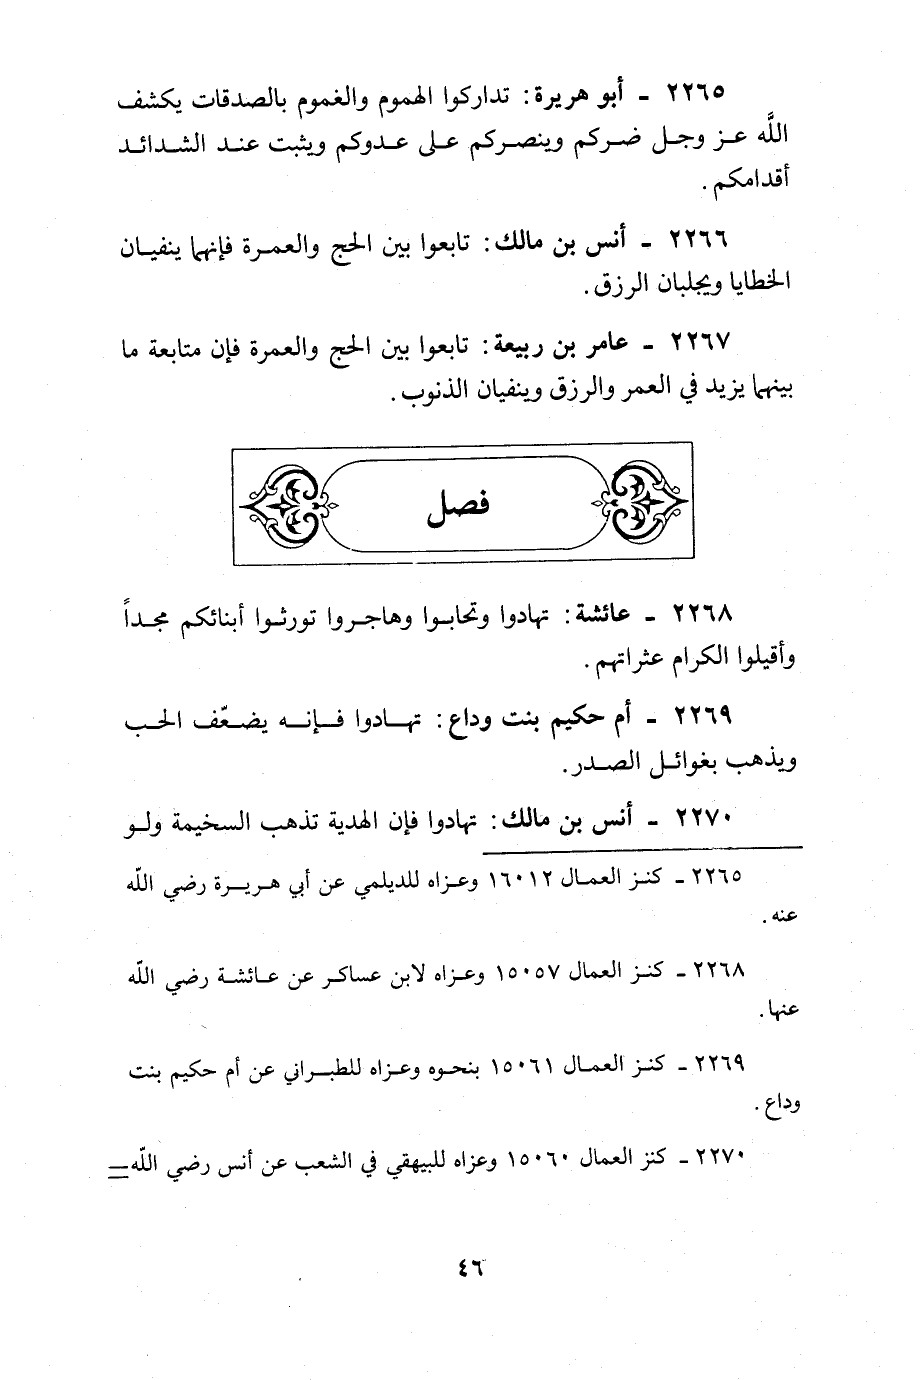 ٢٢٦٥ ـ أبو هريرة: تداركوا الهموم والغموم بالصدقات يكشف
اللَّه عز وجل ضركم وينصركم على عدوكم ويثبت عند الشدائد
أقدامكم.
٢٢٦٦ ـ أنس بن مالك: تابعوا بين الحج والعمرة فإنهما ينفيان
الخطايا ويجلبان الرزق.
٢٢٦٧ ـ عامر بن ربيعة: تابعوا بين الحج والعمرة فإن متابعة ما
بينهما يزيد في العمر والرزق وينفيان الذنوب.
فصل
٢٢٦٨ ـ عائشة: تهادوا وتحابوا وهاجروا تورثوا أبنائكم مجداً
وأقيلوا الكرام عثراتهم.
٢٢٦٩ ـ أم حكيم بنت وداع: تهادوا فإنه يضعّف الحب
ويذهب بغوائل الصدر.
٢٢٧٠ ـ أنس بن مالك: تهادوا فإن الهدية تذهب السخيمة ولو
٢٢٦٥ ـ كنز العمال ١٦٠١٢ وعزاه للديلمي عن أبي هريرة رضي اللّه
عنه.
٢٢٦٨ ـ كنز العمال ١٥٠٥٧ وعزاه لابن عساكر عن عائشة رضي اللّه
عنها.
٢٢٦٩ ـ كنز العمال ١٥٠٦١ بنحوه وعزاه للطبراني عن أم حكيم بنت
وداع.
٢٢٧٠ ـ كنز العمال ١٥٠٦٠ وعزاه للبيهقي في الشعب عن أنس رضي اللّه=
٤٦